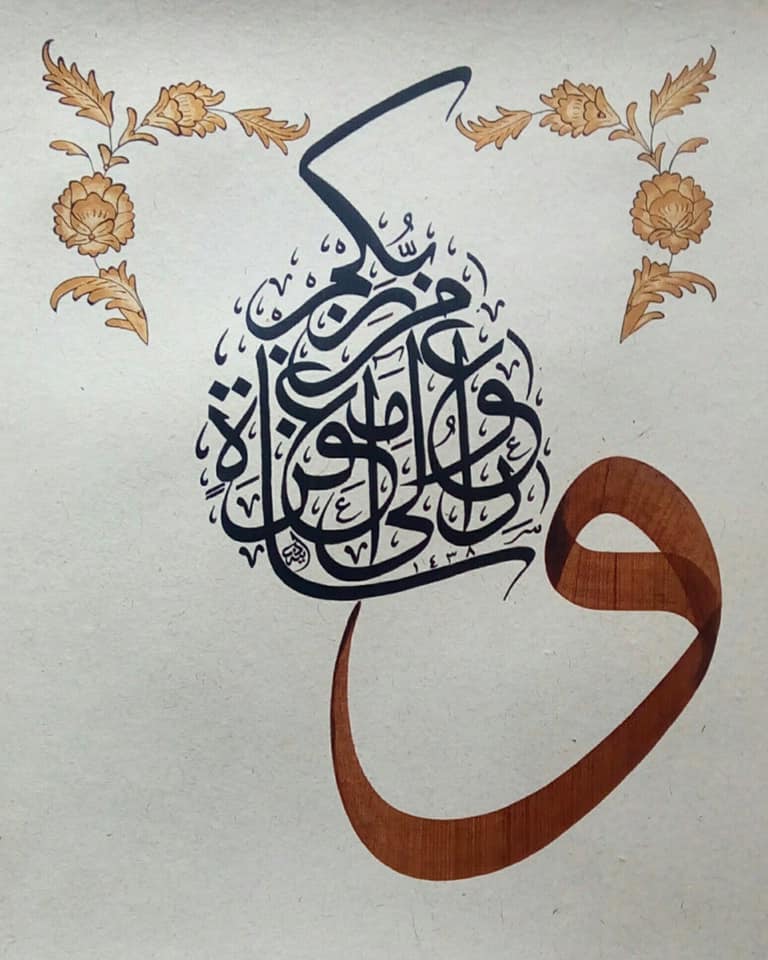 وَسَارِعُوا إِلَى مَغْفِرَةٍ مِنْ رَبِّكُمْ
١٤٣٨